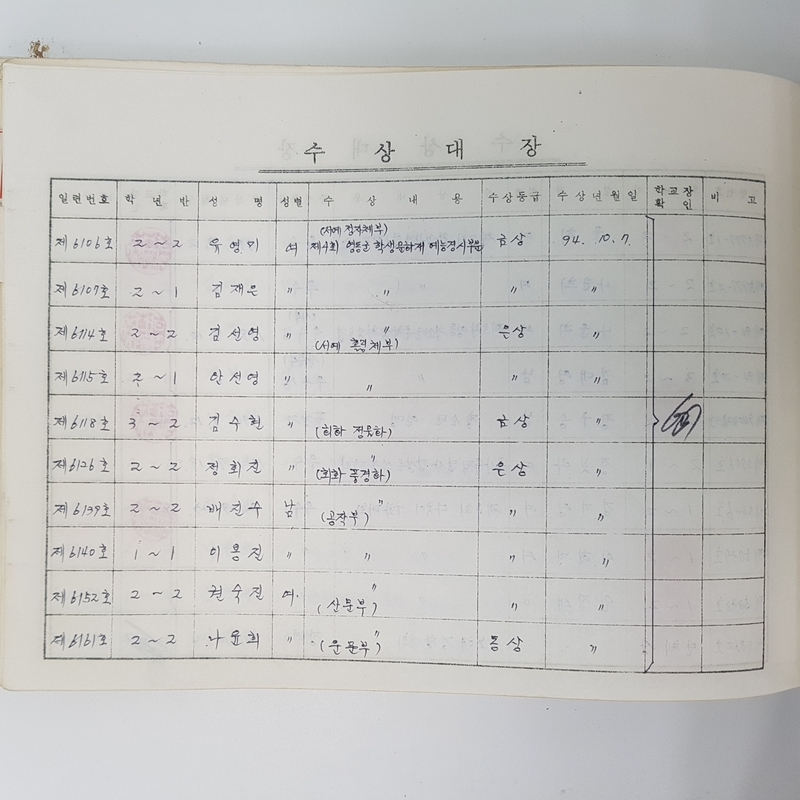 수 상 대 장
일련번호 학 년 반 성 명 성별 수 상 내 용 수상등급 수 상 년 월 일 학교장 확 인 비 고
(서예 정자체부)
제6106호 2~2 유영미 여 제4회 영동군 학생문화제 예능경시부문 금상 94. 10. 7.
제6107호 2~1 김재은 〃 〃 〃 〃
제6114호 2~2 김선영 〃 〃 은상 〃
(서예 흘림체부)
제6115호 2~1 안선영 〃 〃 〃 〃
제6118호 3~2 김수현 〃 〃 금상 〃
(회화
제6126호 2~2 정희진 〃 〃 은상 〃
(회화 풍경화)
제6139호 2~2 배진수 남 〃 〃 〃
(공작부)
제6140호 1~1 이용진 〃 〃 〃 〃
제6152호 2~2 권숙진 여 〃 〃 〃
(산문부)
제6161호 2~2 나윤희 〃 〃 동상 〃
(운문부)